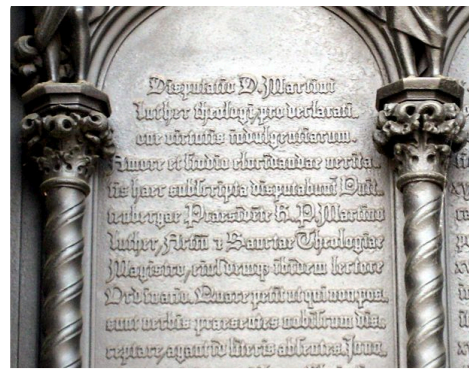 Disputatio D. Martini
Luther theologi, pro declarati-
one virtutis indulgentiarum.
Amore et studio elucidandae verita-
tis haec subscripta disputabunt Witt-
enbergae Praesidēte R. P. Martino
Luther, Artiū & Sanctae Theologiae
Magistro, eiusdemq ibidem lectore
Ordinario. Quare petit ut qui non pos-
sunt verbis praesentes nobiscum dis-
ceptare, agant id literis absentes. In no-